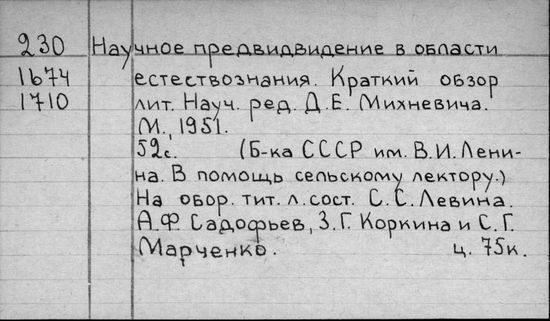 230 Научное предвидвидение в области
1674 естествознания. Краткий обзор
1710 лит. Науч. ред. Д.Е. Михневича.
М., 1951.
52с. (Б-ка СССР им. В.И. Лени-
на. В помощь сельскому лектору.)
На обор. тит. л. сост. С.С. Левина.
А.Ф. Садофьев, З.Г. Коркина и С.Г.
Марченко. ц. 75к.